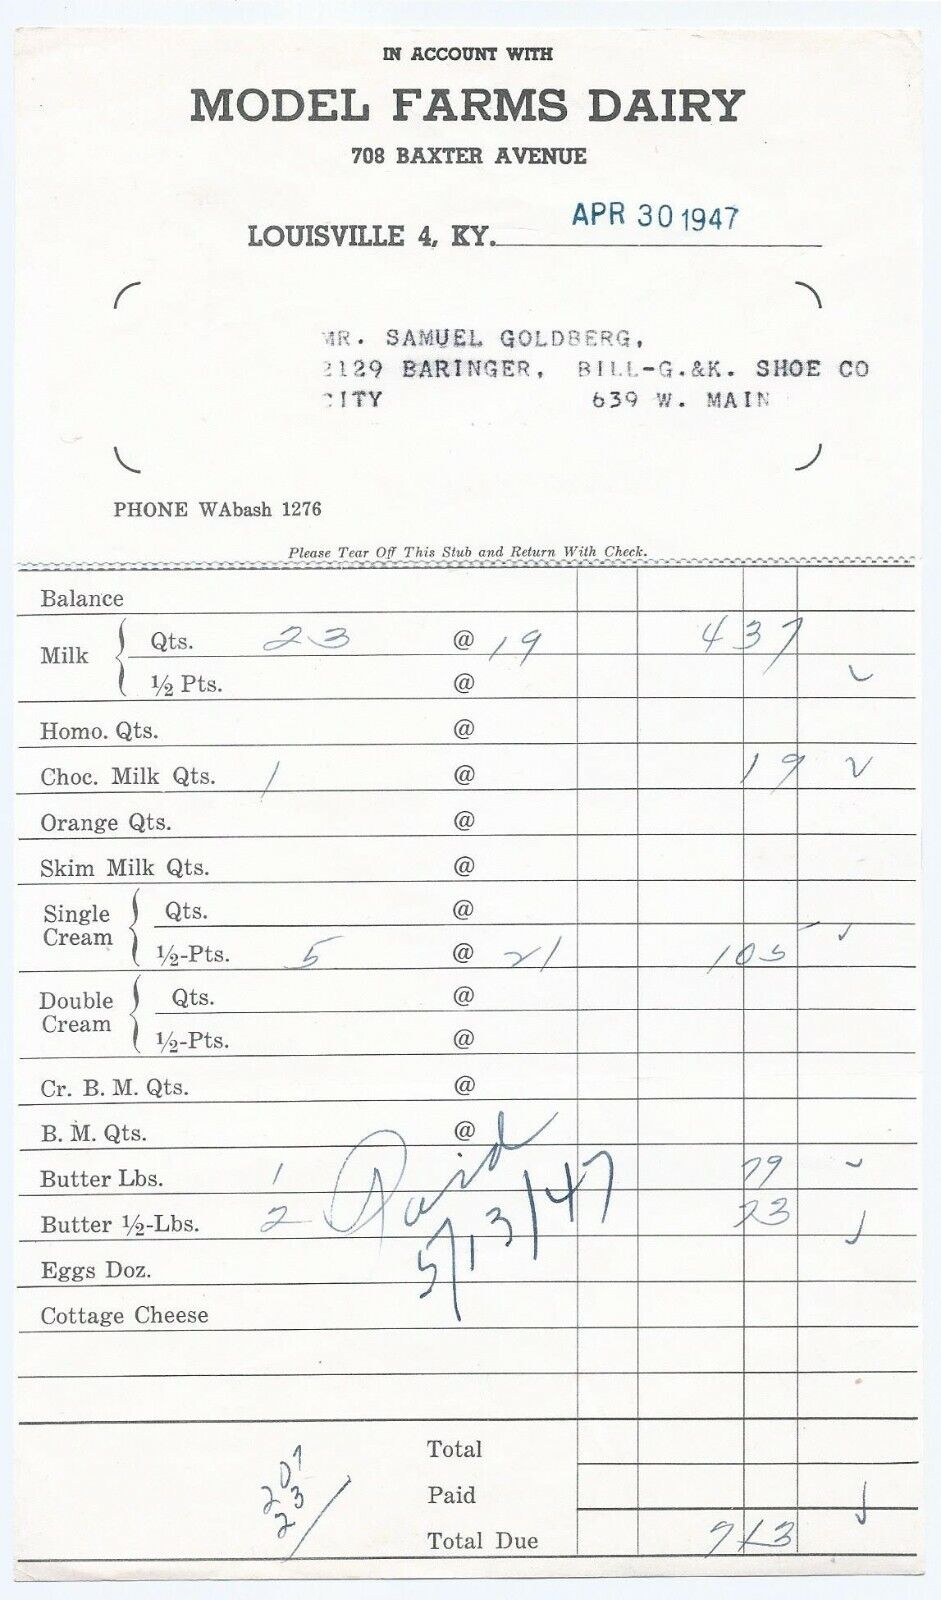 IN ACCOUNT WITH
MODEL FARMS DAIRY
708 BAXTER AVENUE
LOUISVILLE 4, KY. APR 30 1947
MR. SAMUEL GOLDBERG,
2129 BARINGER, BILL-G.&K. SHOE CO
CITY 639 W. MAIN
PHONE WAbash 1276
Please Tear Off This Stub and Return With Check.
Balance
Milk Qts. 23 @ 19 437
½ Pts. @
Homo. Qts. @
Choc. Milk Qts. 1 @ 19
Orange Qts. @
Skim Milk Qts. @
Single Cream Qts. @
½-Pts. 5 @ 21 105
Double Cream Qts. @
½-Pts. @
Cr. B. M. Qts. @
B. M. Qts. @
Butter Lbs. 1 79
Butter ½-Lbs. 2 73
Paid
5/13/47
Eggs Doz.
Cottage Cheese
Total
Paid
Total Due 713